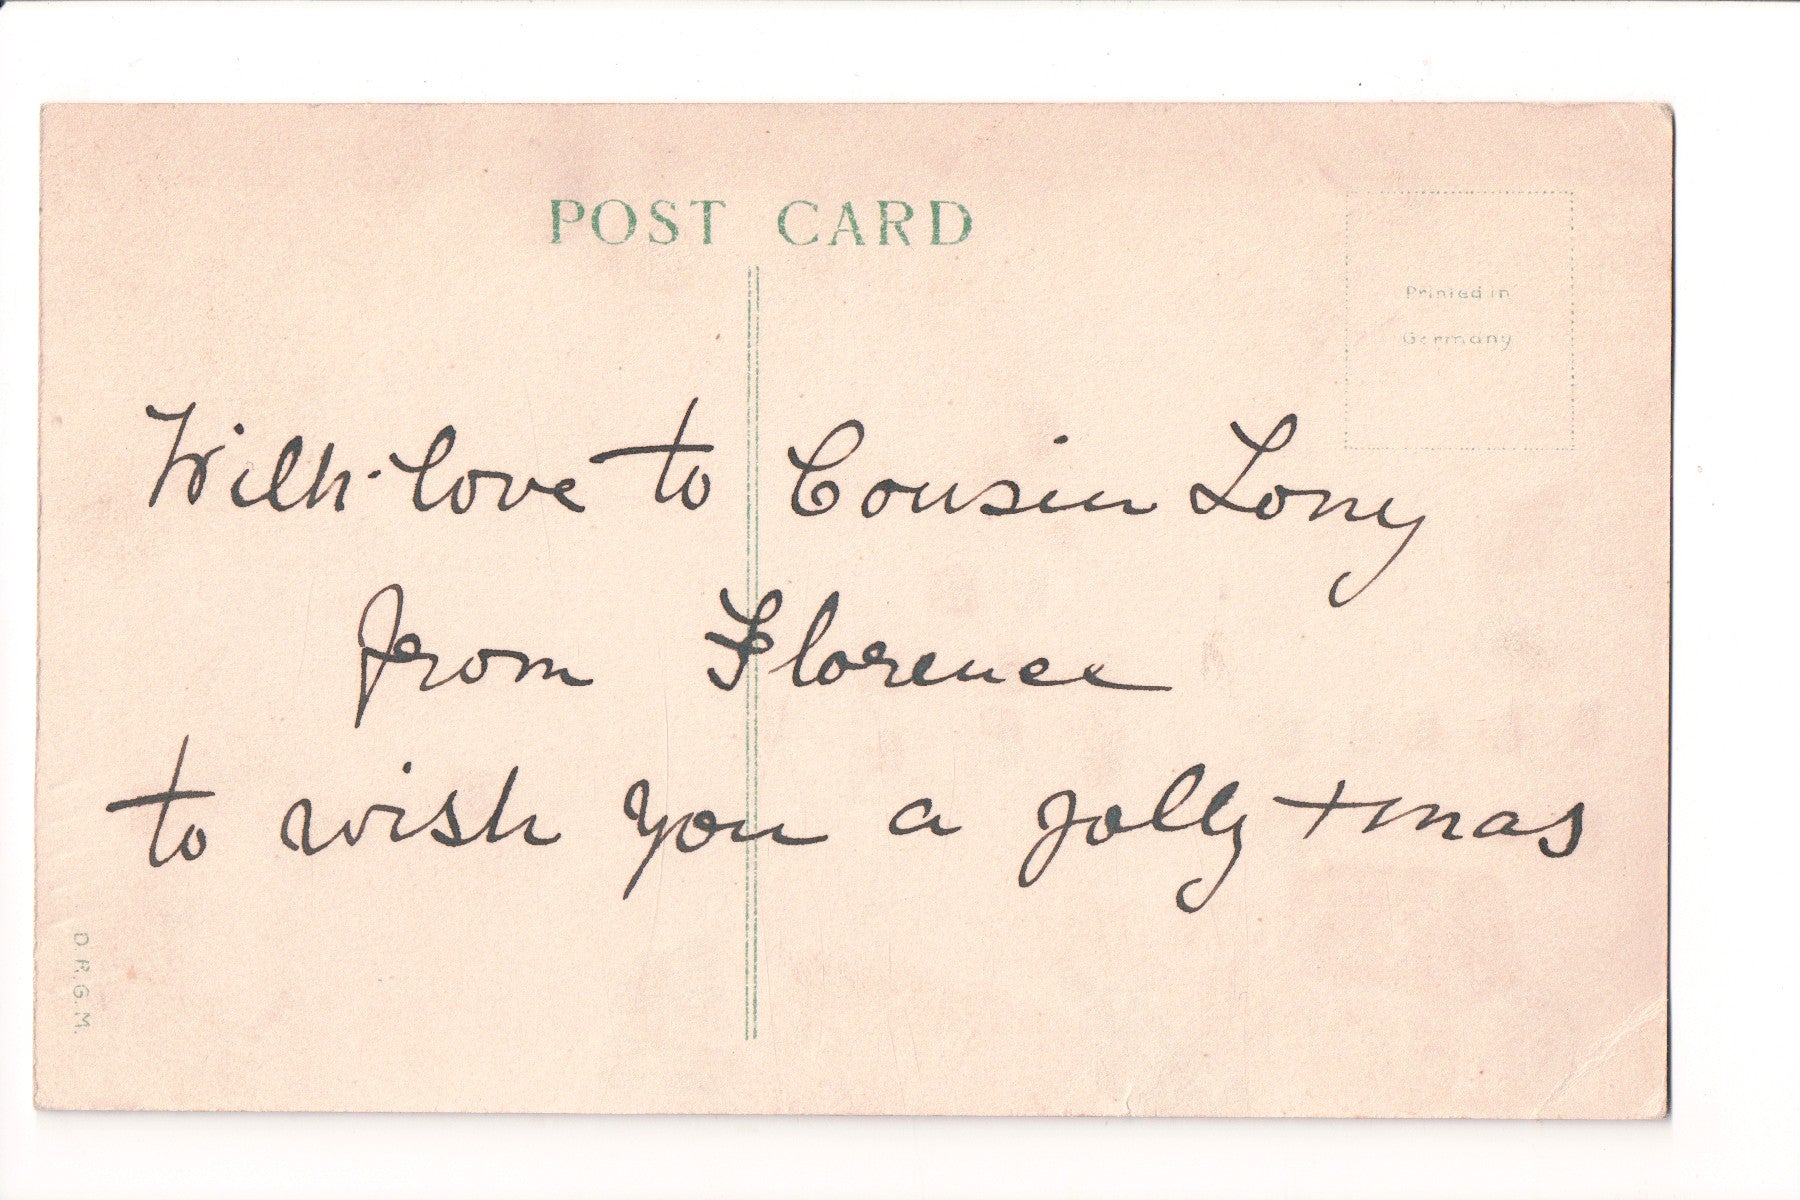 POST CARD
Printed in
Germany
With love to Cousin Lony
from Florence
to wish you a jolly Xmas
D.R.G.M.